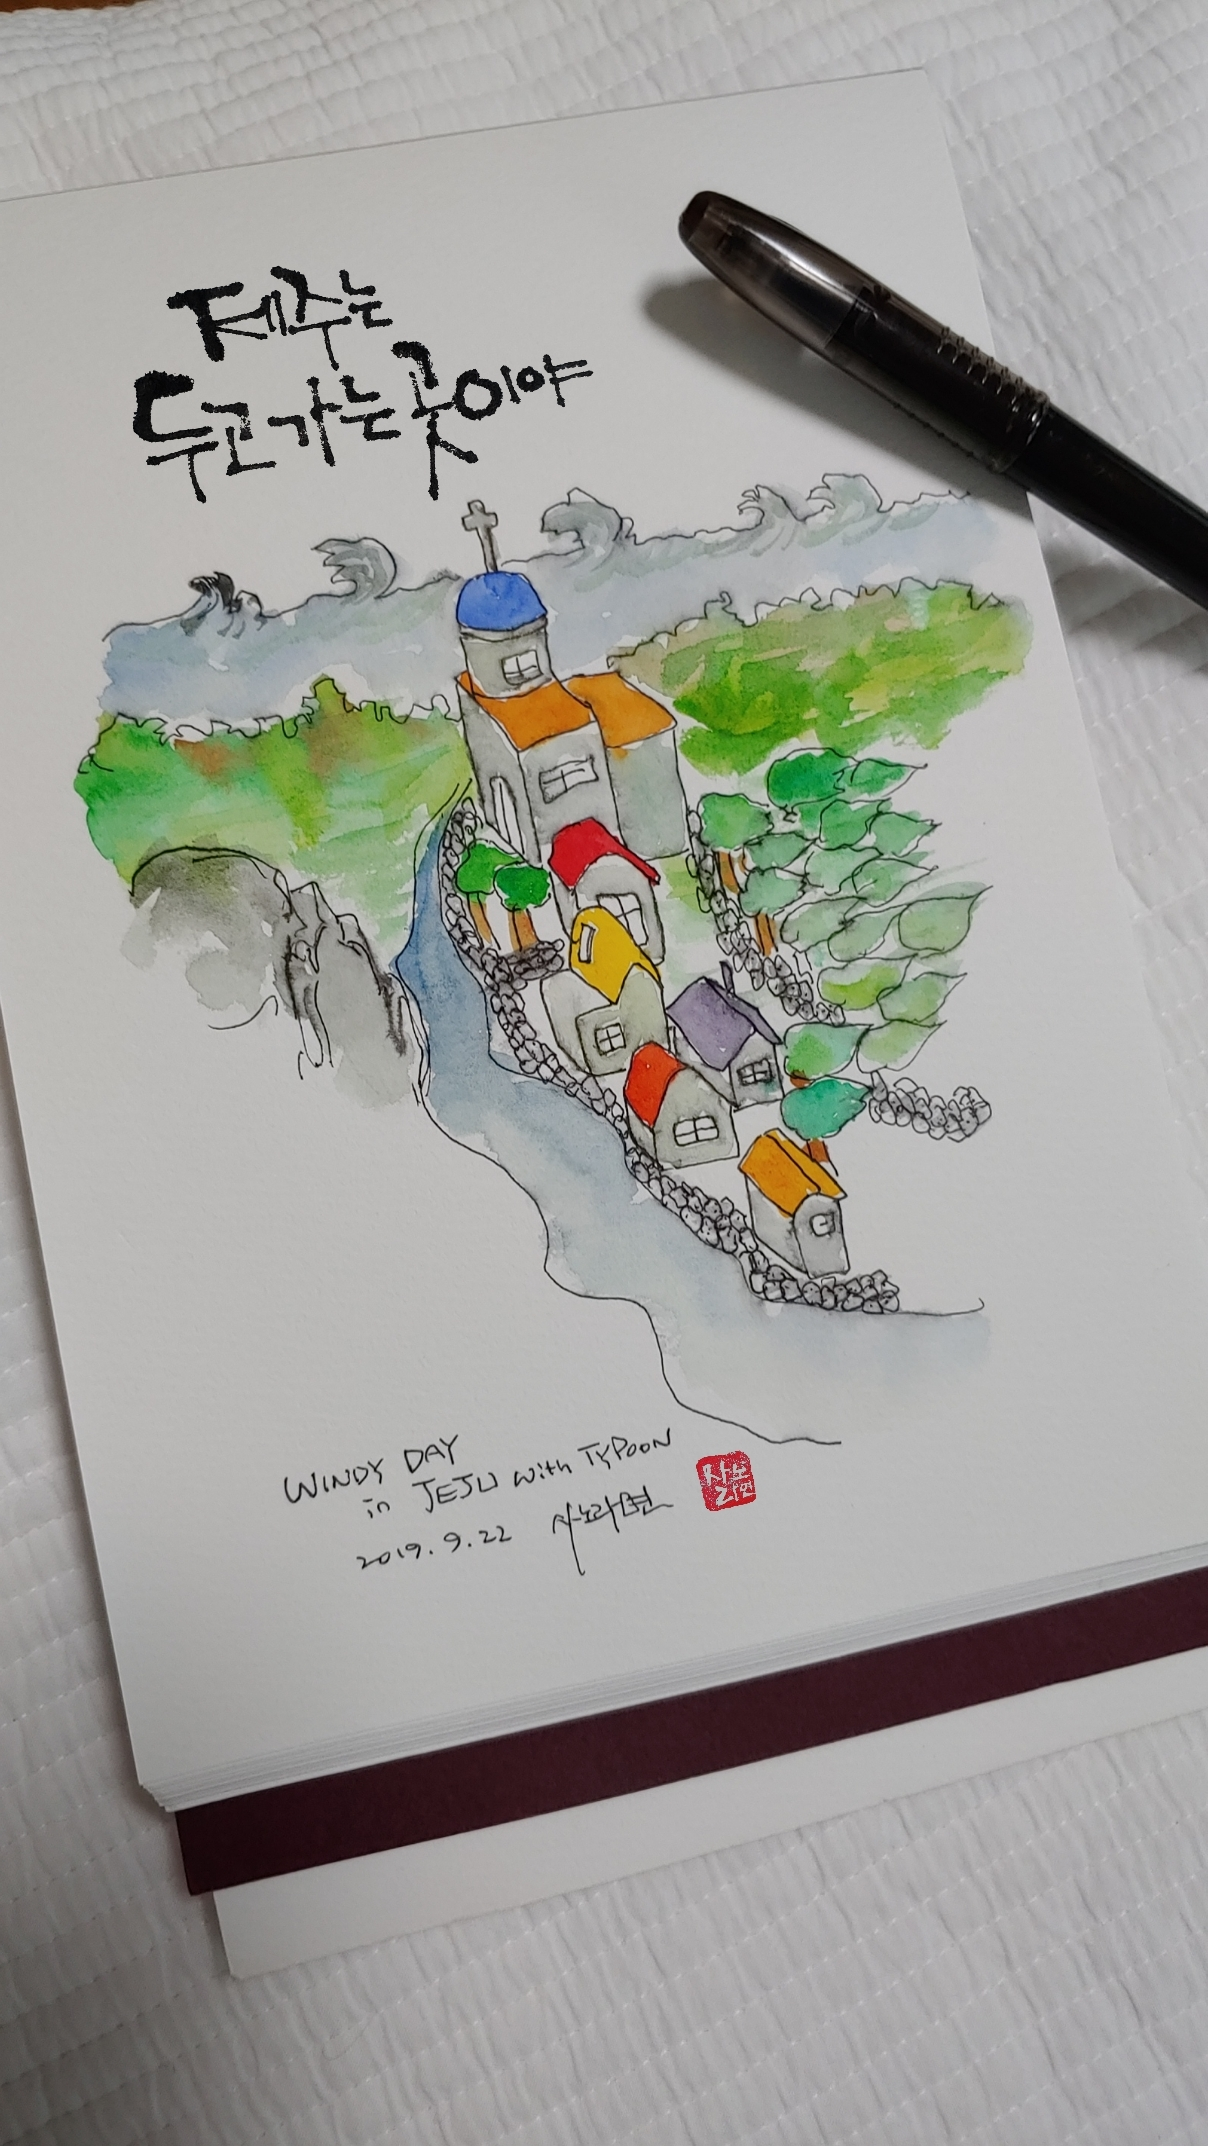 제주는
두고 가는 곳이야
WINDY DAY
in JEJU with TYPOON
2019.9.22